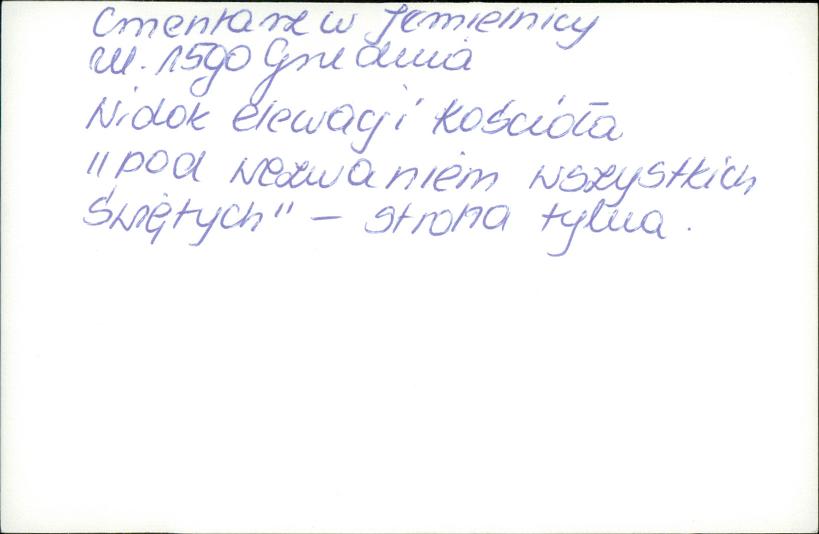 Cmentarz w Jemielnicy
ul. 15go Grudnia
Widok elewacji Kościoła
"pod wezwaniem wszystkich
Świętych" – strona tylna.